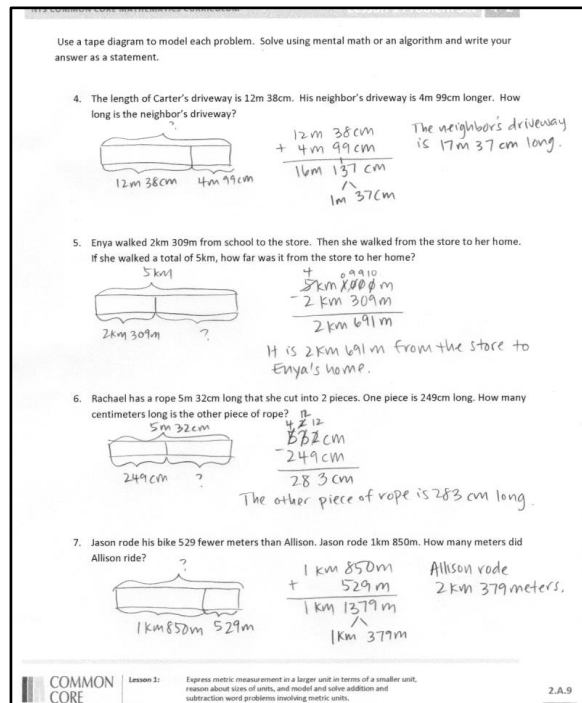 Use a tape diagram to model each problem. Solve using mental math or an algorithm and write your
answer as a statement.
4. The length of Carter's driveway is 12m 38cm. His neighbor's driveway is 4m 99cm longer. How
long is the neighbor's driveway?
?
12m 38cm 4m 99cm
12m 38cm
+ 4m 99cm
16m 137 cm
1m 37cm
The neighbor's driveway
is 17m 37cm long.
5. Enya walked 2km 309m from school to the store. Then she walked from the store to her home.
If she walked a total of 5km, how far was it from the store to her home?
5km
2km 309m ?
4 0 9 9 10
5km 1000m
- 2 km 309m
2 km 691m
It is 2km 691m from the store to
Enya's home.
6. Rachael has a rope 5m 32cm long that she cut into 2 pieces. One piece is 249cm long. How many
centimeters long is the other piece of rope?
5m 32cm
249cm ?
12
4 2 12
532cm
- 249cm
283cm
The other piece of rope is 283 cm long.
7. Jason rode his bike 529 fewer meters than Allison. Jason rode 1km 850m. How many meters did
Allison ride?
?
1km 850m 529m
1 km 850m
+ 529m
1 km 1379 m
1km 379m
Allison rode
2km 379 meters.
COMMON
CORE
Lesson 1:
Express metric measurement in a larger unit in terms of a smaller unit,
reason about sizes of units, and model and solve addition and
subtraction word problems involving metric units.
2.A.9